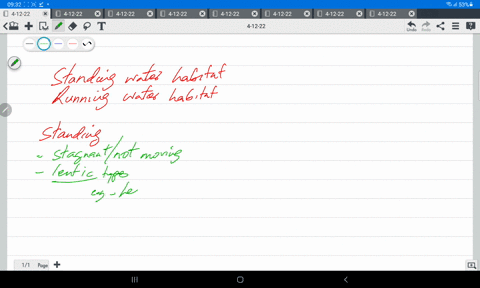 09:32 53%
4-12-22 4-12-22 4-12-22 4-12-22 4-12-22 4-12-22 4-12-22 4-12-22
4-12-22 Undo Redo
Standing water habitat
Running water habitat
Standing
- stagnant/not moving
- lentic types
eg - le
1/1 Page